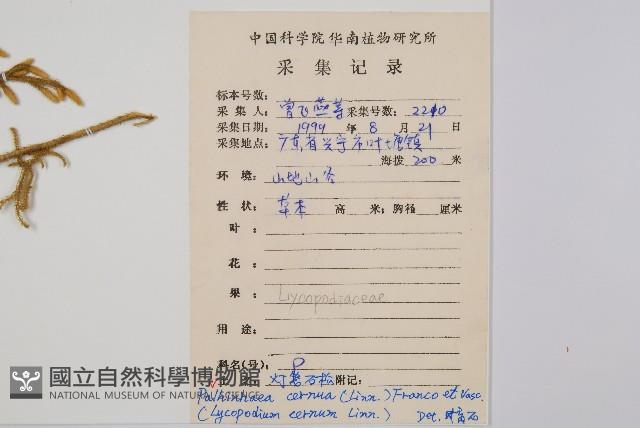 中国科学院华南植物研究所
采集记录
标本号数:
采集人: 曾飞燕等 采集号数: 2210
采集日期: 1999 年 8 月 21 日
采集地点: 广东省兴宁市叶塘镇
海拨 200 米
环 境: 山地山谷
性 状: 草本 高 米; 胸径 厘米
叶:
花:
果: Lycopodiaceae
用 途:
科名(号): P
灯笼石松 附记:
國立自然科學博物館
NATIONAL MUSEUM OF NATURAL SCIENCE
Palhinhaea cernua (Linn.) Franco et Vasc.
(Lycopodium cernum Linn.) Det.